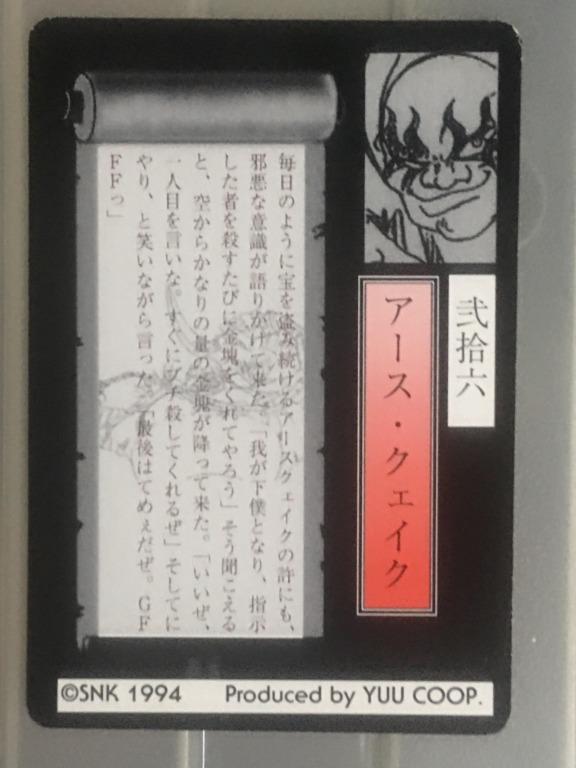 弐拾六
アース・クェイク
毎日のように宝を盗み続けるアースクェイクの許にも、
邪悪な意識が語りかけて来た。「我が下僕となり、指示
した者を殺すたびに金塊をくれてやろう」そう聞こえる
と、空からかなりの量の金塊が降って来た。「いいぜ、
一人目を言いな。すぐにブチ殺してくれるぜ」そしてに
やり、と笑いながら言った。「最後はてめぇだぜ。GF
FFっ」
©SNK 1994 Produced by YUU COOP.